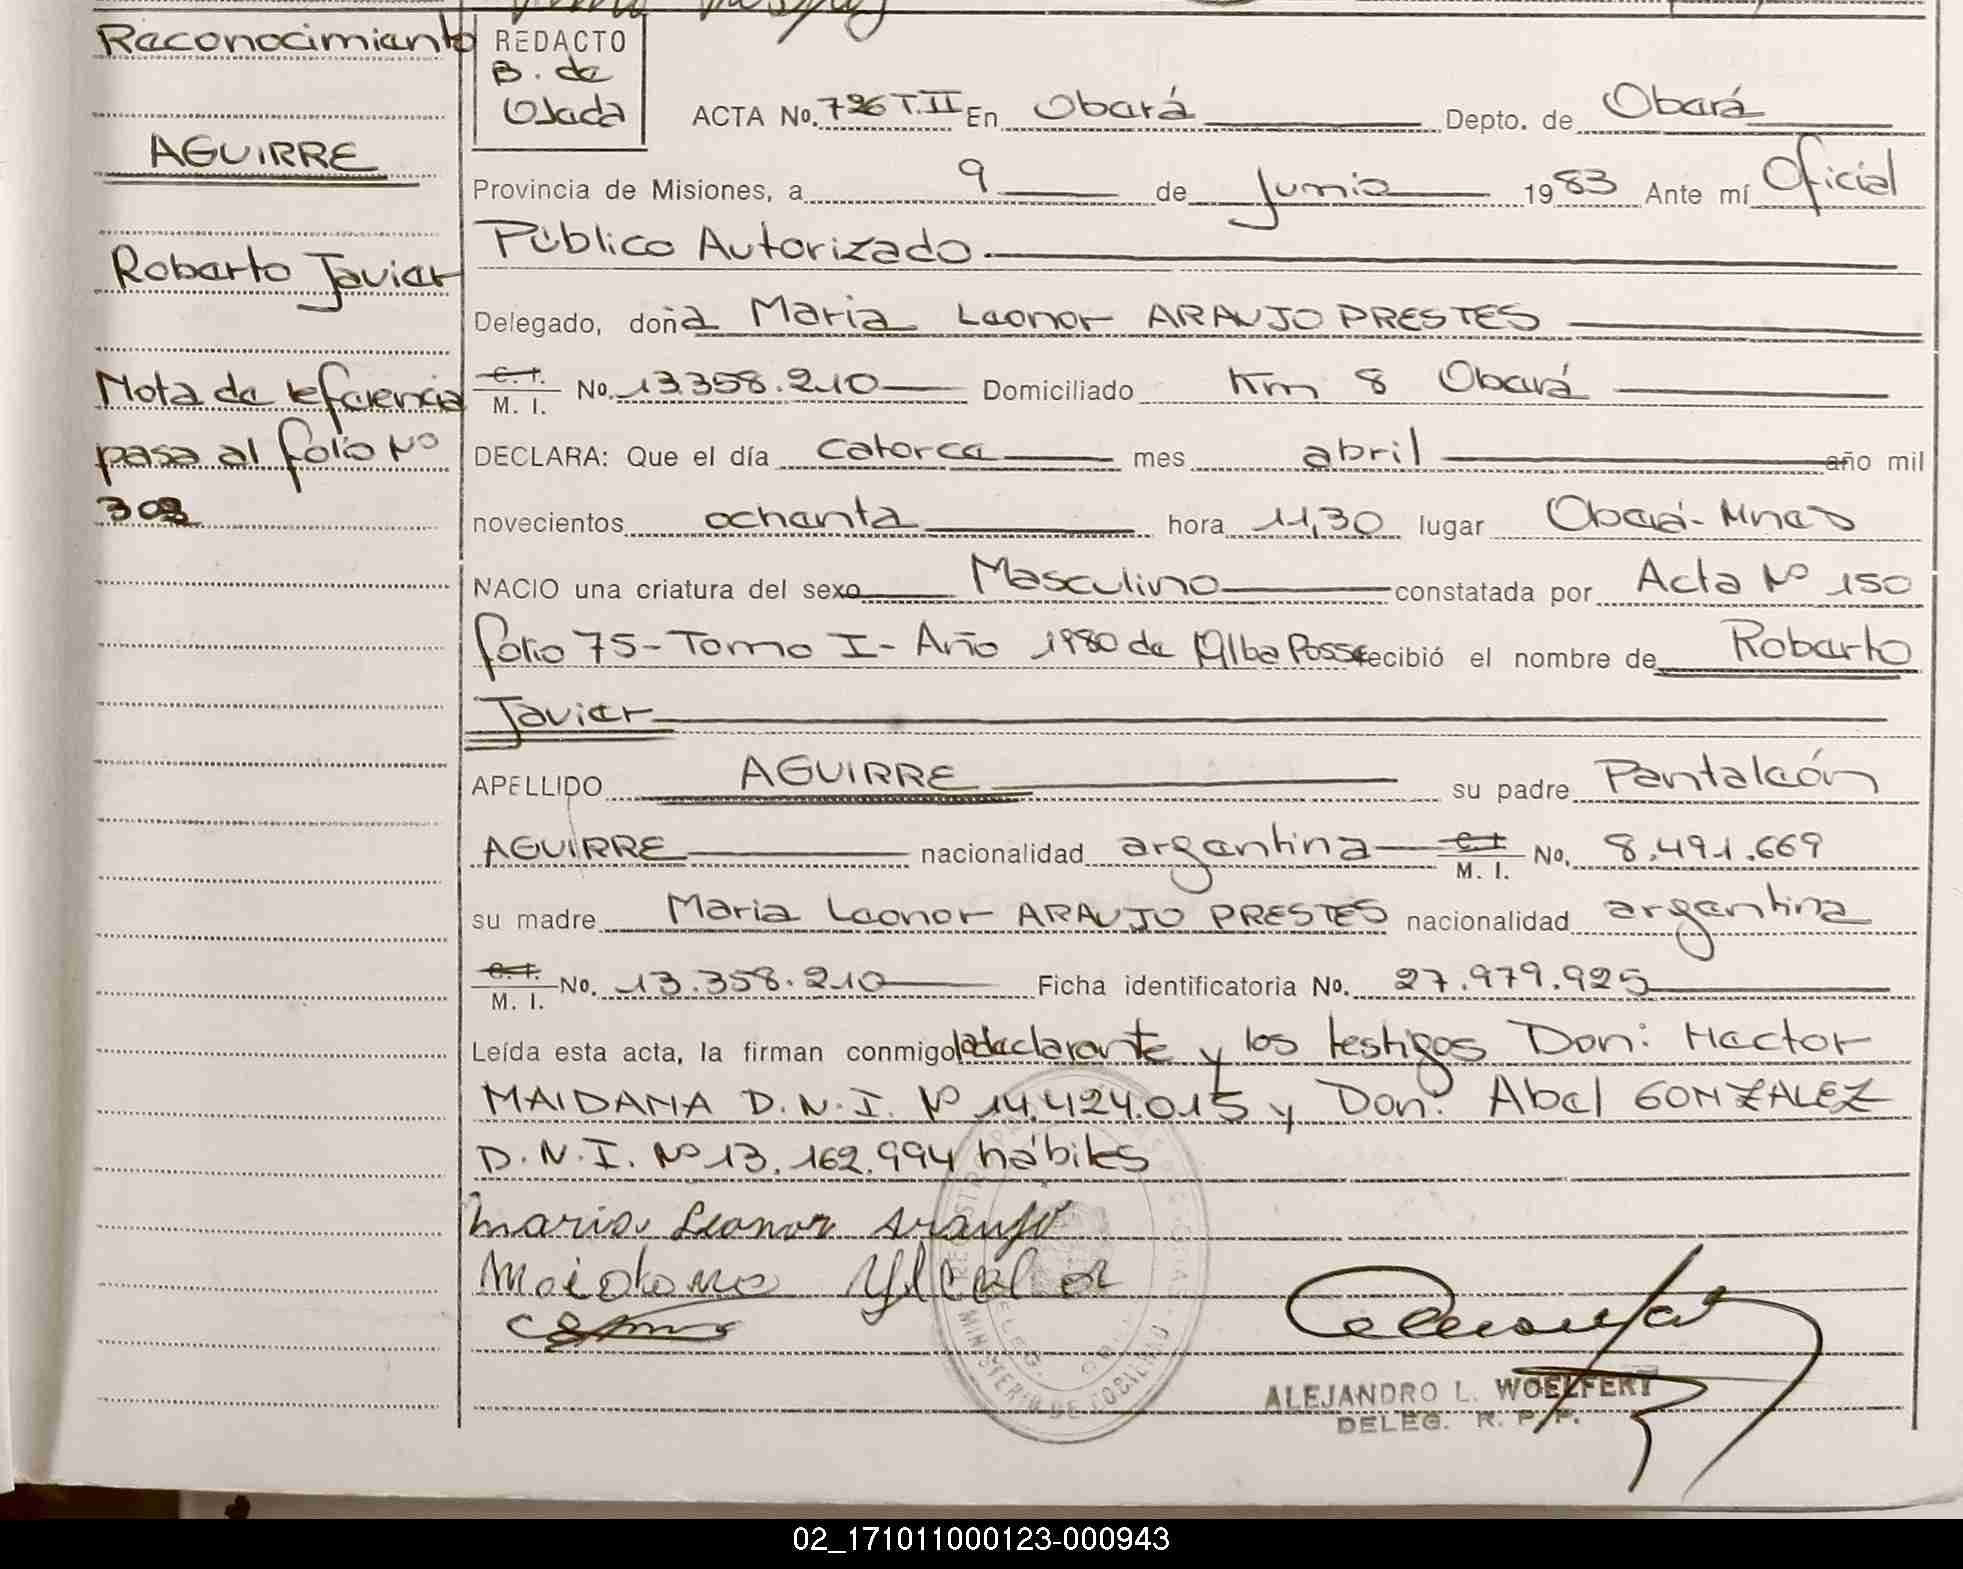 Reconocimiento
AGUIRRE
Roberto Javier
Nota de referencia
pasa al folio Nº
303
REDACTO
B. de
Ojeda
ACTA No. 726 T.II En Oberá Depto. de Oberá
Provincia de Misiones, a 9 de Junio 1983 Ante mí Oficial
Público Autorizado
Delegado, doña Maria Leonor ARAUJO PRESTES
C. I. M. I. No. 13.358.210 Domiciliado Km 8 Oberá
DECLARA: Que el día catorce mes abril año mil
novecientos ochenta hora 11,30 lugar Oberá-Mnes
NACIO una criatura del sexo Masculino constatada por Acta Nº 150
folio 75-Tomo I-Año 1980 de Alba Posse recibió el nombre de Roberto
Javier
APELLIDO AGUIRRE su padre Pantaleón
AGUIRRE nacionalidad argentina C. I. M. I. No. 8.491.669
su madre Maria Leonor ARAUJO PRESTES nacionalidad argentina
C. I. M. I. No. 13.358.210 Ficha identificatoria No. 27.979.925
Leída esta acta, la firman conmigo la declarante y los testigos Don: Hector
MAIDANA D.N.I. Nº 14.424.015 y Don: Abel GONZALEZ
D.N.I. Nº 13.162.994 hábiles
Maria Leonor Araujo
Maidana
MINISTERIO DE GOBIERNO
ALEJANDRO L. WOELFERT
DELEG. R. P. P.
02_171011000123-000943